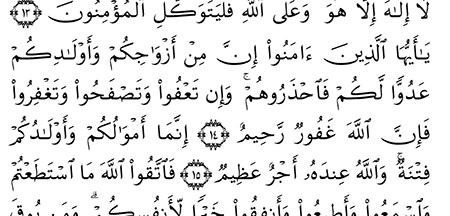 لَا إِلَٰهَ إِلَّا هُوَ ۚ وَعَلَى ٱللَّهِ فَلْيَتَوَكَّلِ ٱلْمُؤْمِنُونَ ١٣
يَٰٓأَيُّهَا ٱلَّذِينَ ءَامَنُوٓا۟ إِنَّ مِنْ أَزْوَٰجِكُمْ وَأَوْلَٰدِكُمْ
عَدُوًّا لَّكُمْ فَٱحْذَرُوهُمْ ۚ وَإِن تَعْفُوا۟ وَتَصْفَحُوا۟ وَتَغْفِرُوا۟
فَإِنَّ ٱللَّهَ غَفُورٌ رَّحِيمٌ ١٤ إِنَّمَآ أَمْوَٰلُكُمْ وَأَوْلَٰدُكُمْ
فِتْنَةٌ ۚ وَٱللَّهُ عِندَهُۥٓ أَجْرٌ عَظِيمٌ ١٥ فَٱتَّقُوا۟ ٱللَّهَ مَا ٱسْتَطَعْتُمْ
وَٱسْمَعُوا۟ وَأَطِيعُوا۟ وَأَنفِقُوا۟ خَيْرًا لِّأَنفُسِكُمْ ۗ وَمَن يُوقَ